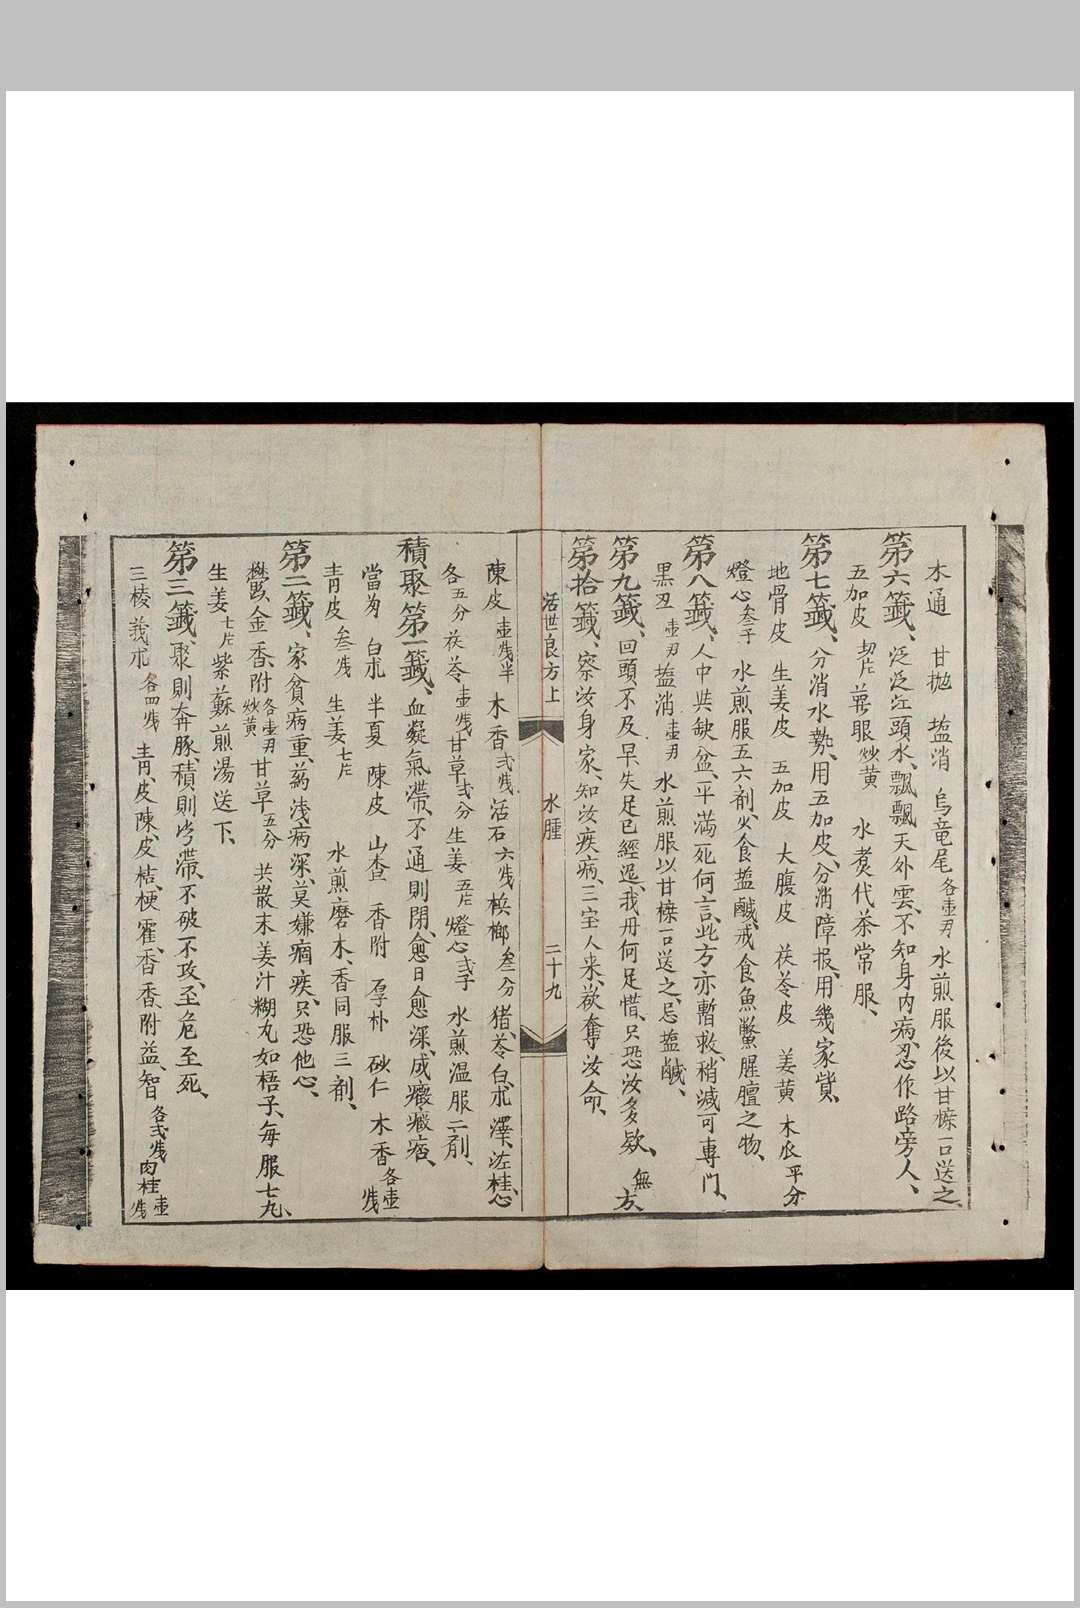 木通 甘抛 塩消 烏竜尾各壹刃水煎服後以甘樜一口送之、
第六籤、泛泛江頭水、飄飄天外雲、不知身内病、忍作路旁人、
五加皮切片 萆眼炒黄 水煮代茶常服、
第七籤、分消水勢、用五加皮、分消障报、用幾家貲、
地骨皮 生姜皮 五加皮 大腹皮 茯苓皮 姜黄 木瓜平分
燈心叁子 水煎服五六剤、火食塩鹹、戒食魚鱉腥膻之物、
第八籤、人中共缺盆、平滿死何言、此方亦暫救、稍減可專門、
黒丑壹刃塩消壹刃 水煎服以甘樜一口送之、忌塩鹹、
第九籤、回頭、不及早失足已經過、我毋何足惜、只恐汝多欵、無方、
第拾籤、察汝身家、知汝疾病、三宝人来、欲奪汝命、
活世良方上 水腫 二十九
陳皮壹戋半 木香弍戋活石六戋梹榔叁分猪、苓白朮、澤、泻桂心、
各五分茯苓壹戋甘草弍分生姜五片燈心弍子 水煎温服二剤、
積聚第一籤、血凝氣滯、不通則閉、愈日愈深、成癥癥痞、
當歸 白朮 半夏 陳皮 山査 香附 厚朴 砂仁 木香各壹戋
青皮叁戋 生姜七片 水煎磨木、香同服三剤、
第二籤、家貧病重、葯浅病深、莫嫌痼疾、只恐他心、
欝、金香、附各壹刃炒黄甘草五分 共散末姜汁糊丸如梧子、每服七丸、
生姜七片紫蘇煎湯送下、
第三籤、聚則奔豚、積則步滯、不破不攻、至危至死、
三棱莪朮各四戋青、皮陳、皮桔、梗霍、香香、附益、智各弍戋肉桂壹戋